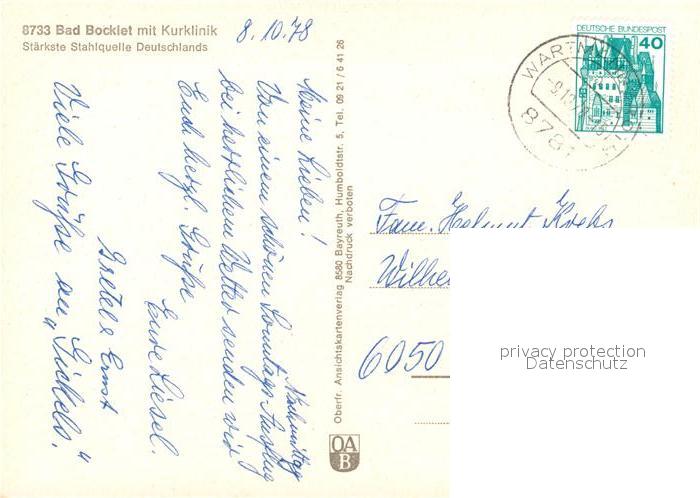 8733 Bad Bocklet mit Kurklinik
Stärkste Stahlquelle Deutschlands
8. 10. 78
Meine Lieben!
Von einem schönen Sonntag-Nachmittag Ausflug
bei herrlichem Wetter senden wir
Euch herzl. Grüße
Eure Liesel.
Gretel & Ernst
Viele Grüße an "Gickels."
Oberfr. Ansichtskartenverlag 8580 Bayreuth, Humboldtstr. 5, Tel. 09 21 / 6 41 26
Nachdruck verboten
OA
B
DEUTSCHE BUNDESPOST
40
WARTM
-9.10.
8781
Fam. Helmut Krebs
Wilhe
6050
privacy protection
Datenschutz